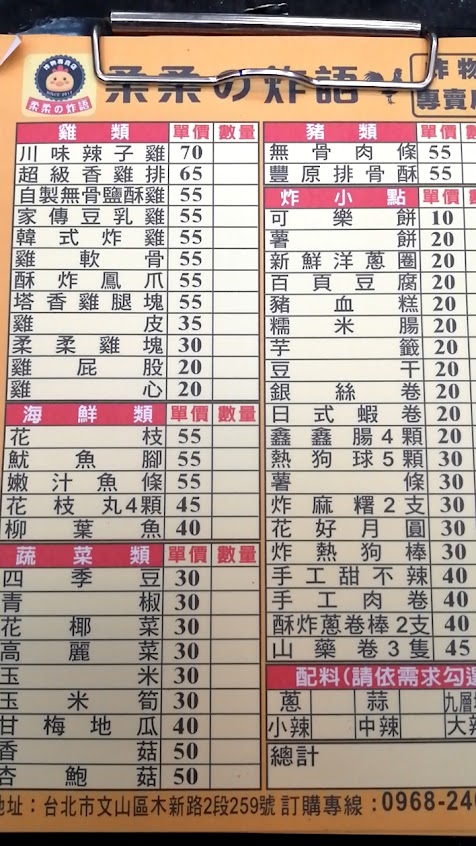 炸物專賣店
柔柔の炸語
柔柔の炸語
炸物
專賣
雞類 單價 數量
川味辣子雞 70
超級香雞排 65
自製無骨鹽酥雞 55
家傳豆乳雞 55
韓式炸雞 55
雞軟骨 55
酥炸鳳爪 55
塔香雞腿塊 55
雞皮 35
柔柔雞塊 30
雞屁股 20
雞心 20
海鮮類 單價 數量
花枝 55
魷魚腳 55
嫩汁魚條 55
花枝丸4顆 45
柳葉魚 40
蔬菜類 單價 數量
四季豆 30
青椒 30
花椰菜 30
高麗菜 30
玉米 30
玉米筍 30
甘梅地瓜 40
香菇 50
杏鮑菇 50
豬類 單價
無骨肉條 55
豐原排骨酥 55
炸小點 單價
可樂餅 10
薯餅 20
新鮮洋蔥圈 20
百頁豆腐 20
豬血糕 20
糯米腸 20
芋籤 20
豆干 20
銀絲卷 20
日式蝦卷 20
鑫鑫腸4顆 20
熱狗球5顆 30
薯條 30
炸麻糬2支 30
花好月圓 30
炸熱狗棒 30
手工甜不辣 40
手工肉卷 40
酥炸蔥卷棒2支 40
山藥卷3隻 45
配料(請依需求勾選
蔥 蒜 九層
小辣 中辣 大辣
總計
地址：台北市文山區木新路2段259號 訂購專線：0968-240